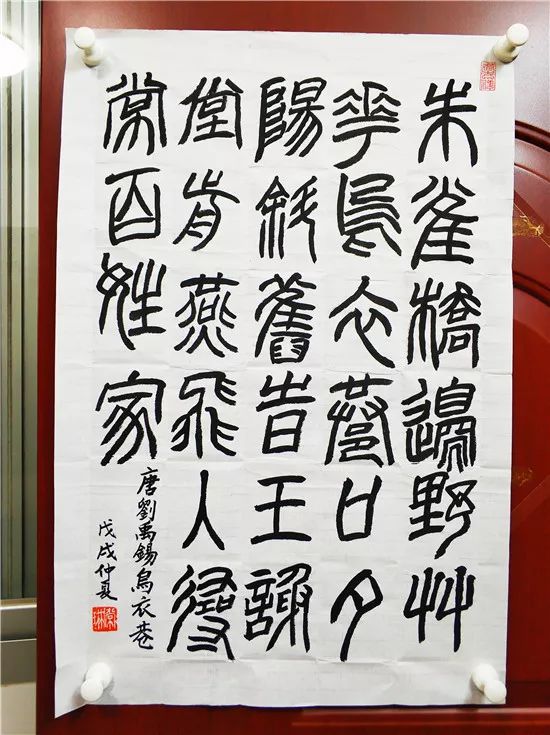 朱雀橋邊野艸
花烏衣巷口夕
陽斜舊旹王謝
堂歬燕飛入尋
常百姓家
唐劉禹錫烏衣巷
戊戌仲夏